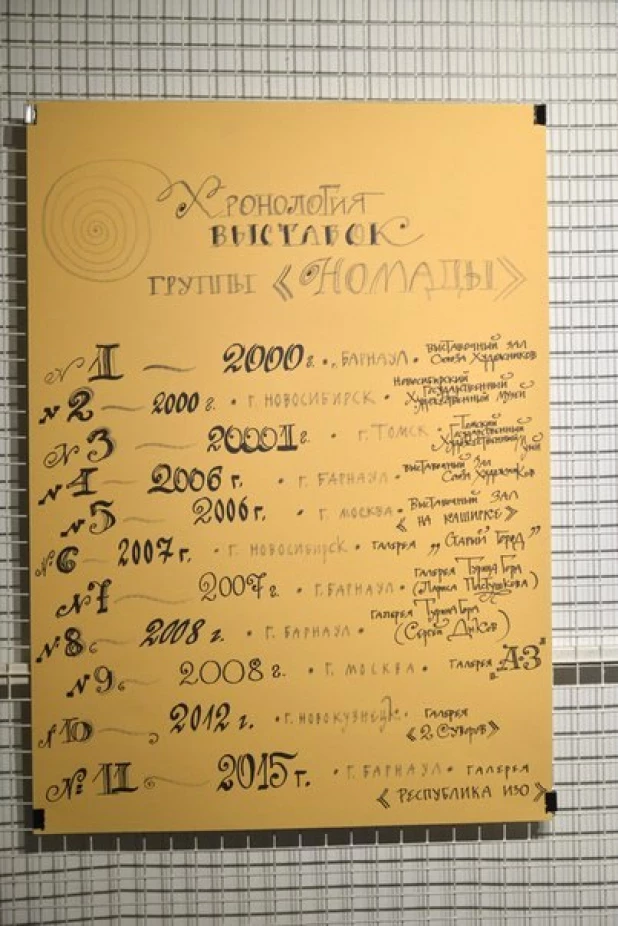 Хронология
выставок
группы «Номады»
№1 — 2000 г. • г. Барнаул • выставочный зал
Союза Художников
№2 — 2000 г. • г. Новосибирск • Новосибирский
Государственный
Художественный музей
№3 — 20001 г. • г. Томск • Томский
Государственный
Художественный музей
№4 — 2006 г. • г. Барнаул • выставочный зал
Союза Художников
№5 — 2006 г. • г. Москва • Выставочный зал
« на Каширке »
№6 — 2007 г. • г. Новосибирск • галерея „Старый Город”
№7 — 2007 г. • г. Барнаул • галерея Турина Гора
(Лариса Пастушкова)
№8 — 2008 г. • г. Барнаул • галерея Турина Гора
(Сергей Дыков)
№9 — 2008 г. • г. Москва • галерея „А-3”
№10 — 2012 г. • г. Новокузнецк • галерея
«2. Суворов»
№11 — 2015 г. • г. Барнаул • галерея
«Республика ИЗО»